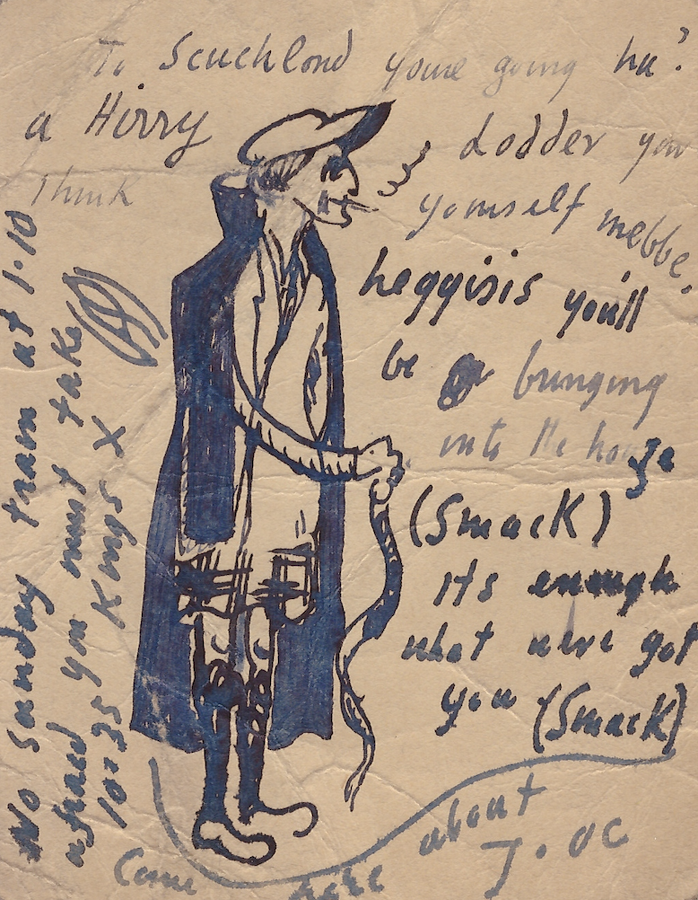 To Scuchlond youre going ha?
a Hirry dodder you
Think yourself mebbe.
heggisis you'll
be a bringing
into the houze
(Smack)
its enough
what weve got
you (Smack)
Come here about 7.0c
No Sunday train at 1.10
afraid you must take
10.35 Kings X